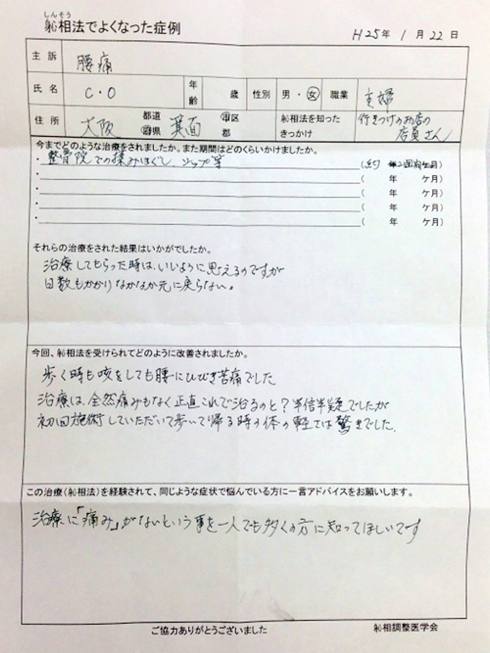 しんそう
䏮相法でよくなった症例
H25年 1月 22日
主訴 腰痛
氏名 C.O 年齢 歳 性別 男・女 職業 主婦
住所 大阪 都道府県 箕面 市区郡 䏮相法を知ったきっかけ 行きつけのお店の店員さん
今までどのような治療をされましたか。また期間はどのくらいかけましたか。
・整骨院での揉みほぐし、シップ等 (約
・ ( 年 ケ月)
・ ( 年 ケ月)
・ ( 年 ケ月)
・ ( 年 ケ月)
それらの治療をされた結果はいかがでしたか。
治療してもらった時は、いいように思えるのですが
日数もかかりなかなか元に戻らない。
今回、䏮相法を受けられてどのように改善されましたか。
歩く時も咳をしても腰にひびき苦痛でした
治療は、全然痛みもなく正直これで治るのと?半信半疑でしたが
初回施術していただいて歩いて帰る時の体の軽さは驚きでした。
この治療(䏮相法)を経験されて、同じような症状で悩んでいる方に一言アドバイスをお願いします。
治療に「痛み」がないという事を一人でも多くの方に知ってほしいです
ご協力ありがとうございました
䏮相調整医学会